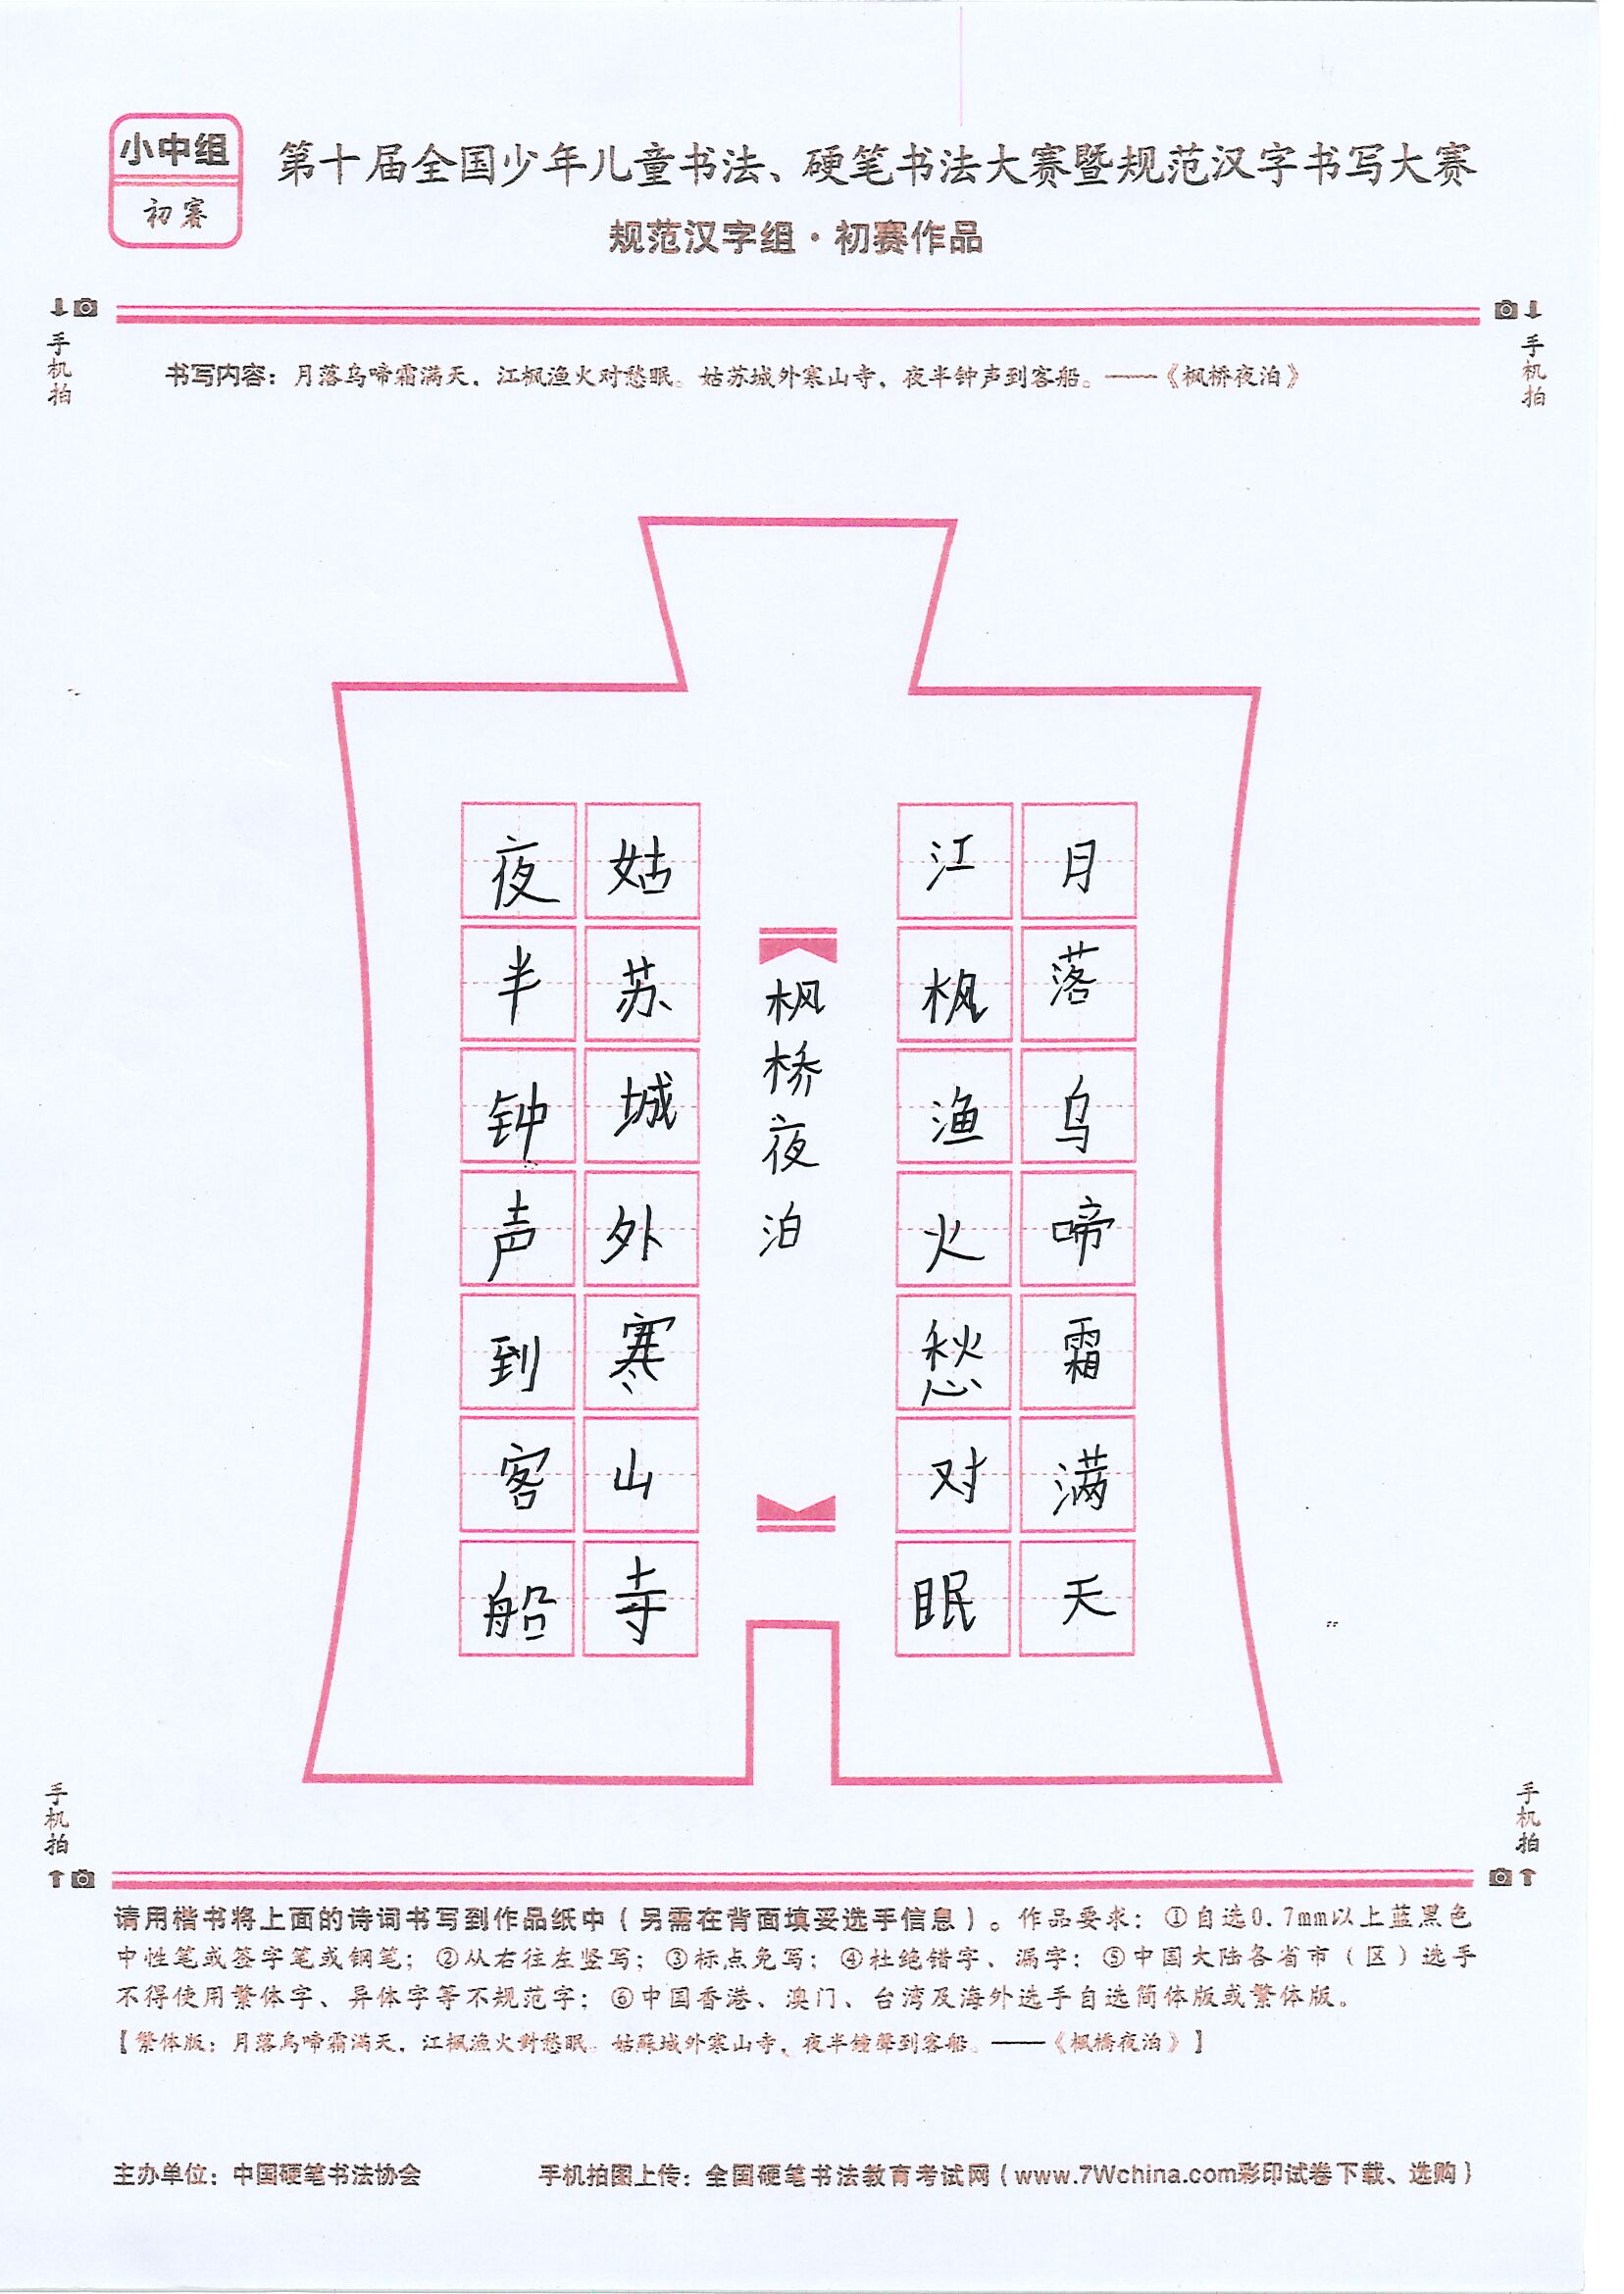 小中组
初赛
第十届全国少年儿童书法、硬笔书法大赛暨规范汉字书写大赛
规范汉字组·初赛作品
手机拍
手机拍
书写内容：月落乌啼霜满天，江枫渔火对愁眠。姑苏城外寒山寺，夜半钟声到客船。——《枫桥夜泊》
月落乌啼霜满天
江枫渔火愁对眠
枫桥夜泊
姑苏城外寒山寺
夜半钟声到客船
手机拍
手机拍
请用楷书将上面的诗词书写到作品纸中（另需在背面填妥选手信息）。作品要求：①自选0.7mm以上蓝黑色
中性笔或签字笔或钢笔；②从右往左竖写；③标点免写；④杜绝错字、漏字；⑤中国大陆各省市（区）选手
不得使用繁体字、异体字等不规范字；⑥中国香港、澳门、台湾及海外选手自选简体版或繁体版。
【繁体版：月落烏啼霜滿天，江楓漁火對愁眠。姑蘇城外寒山寺，夜半鐘聲到客船。——《楓橋夜泊》】
主办单位：中国硬笔书法协会
手机拍图上传：全国硬笔书法教育考试网（www.7Wchina.com彩印试卷下载、选购）